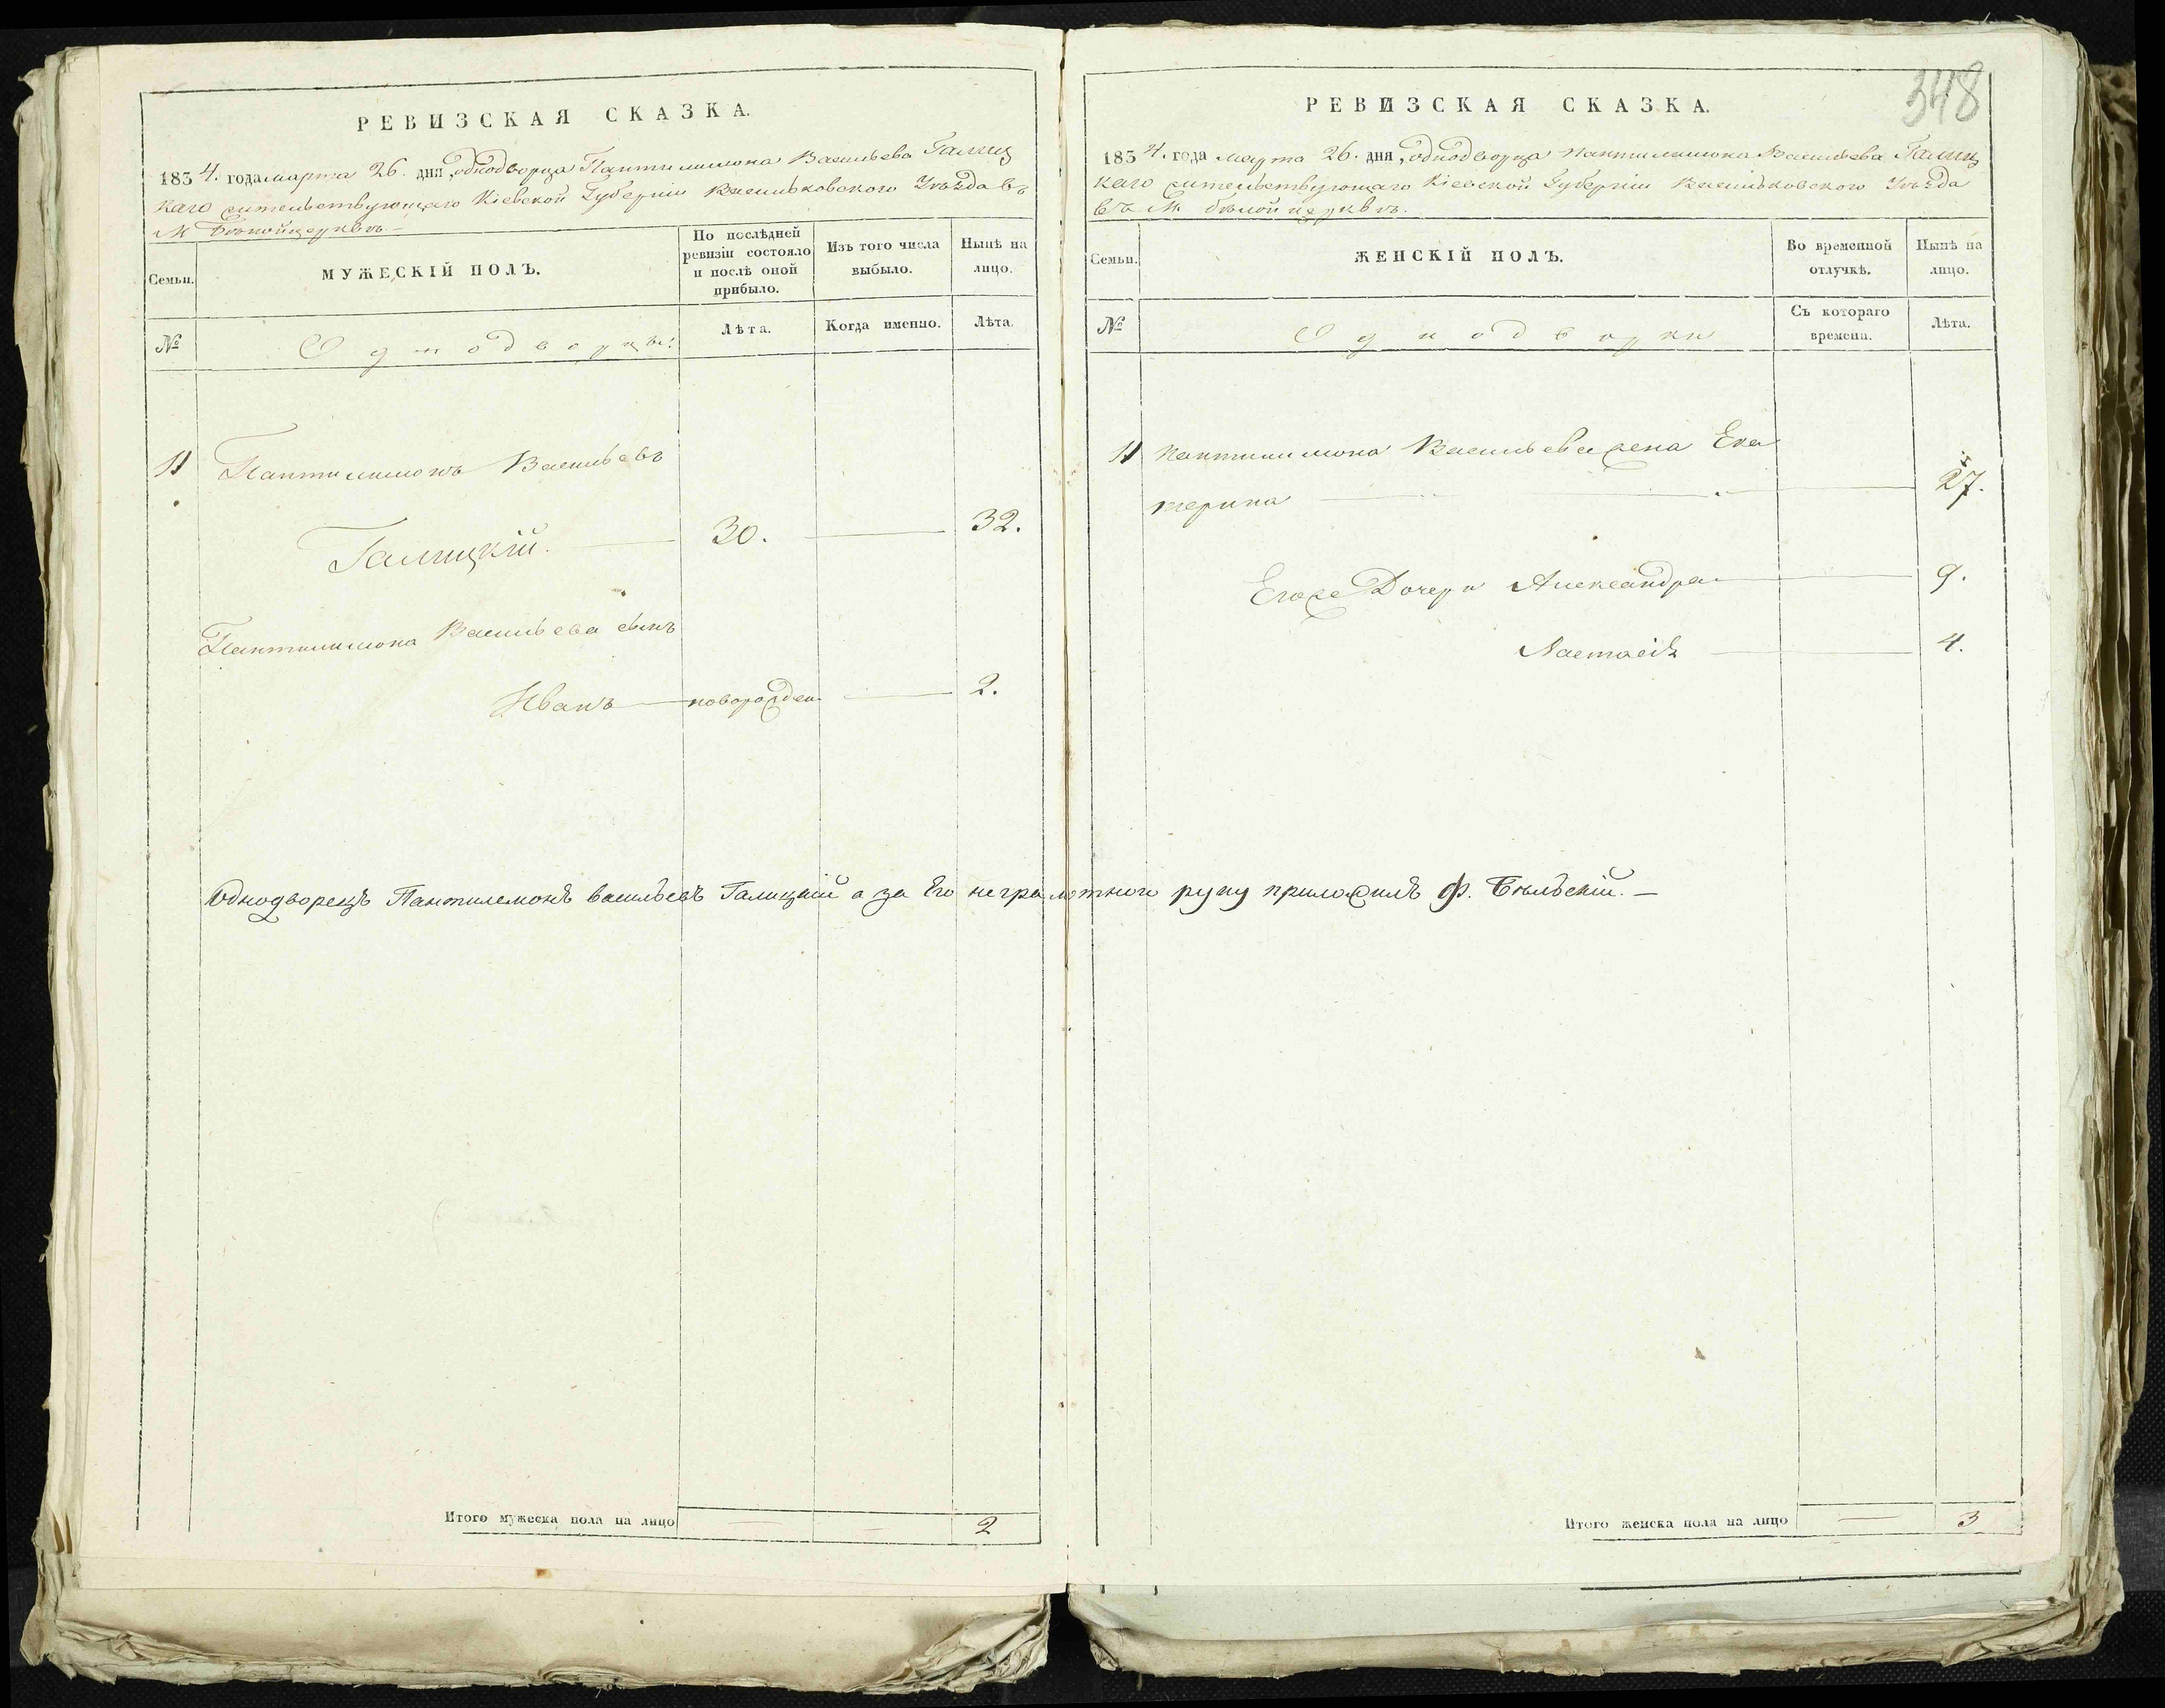 РЕВИЗСКАЯ СКАЗКА.
1834. года марта 26. дня, однодворца Пантилимона Васильева Галиц
каго жительствующаго Кіевской Губерніи Васильковского Уѣзда въ
М Бѣлойцерквѣ.
Семьи.
МУЖЕСКІЙ ПОЛЪ.
По послѣдней
ревизіи состояло
и послѣ оной
прибыло.
Изъ того числа
выбыло.
Нынѣ на
лицо.
№
Однодворцы:
Лѣта.
Когда именно.
Лѣта.
11 Пантилимонъ Васильевъ
Галицкій. 30. 32.
Пантилимона Васильева сынъ
Иванъ новорожден 2.
Итого мужеска пола на лицо 2
348
РЕВИЗСКАЯ СКАЗКА.
1834. года марта 26. дня, однодворца Пантилимона Васильева Галиц
каго жительствующаго Кіевской Губерніи Васильковского Уѣзда
въ М бѣлой церквѣ.
Семьи.
ЖЕНСКІЙ ПОЛЪ.
Во временной
отлучкѣ.
Нынѣ на
лицо.
№
Однодворки
Съ котораго
времени.
Лѣта.
11 Пантилимона Васильева жена Ека
терина 27.
Егоже Дочери Александра 9.
Настасія 4.
Однодворецъ Пантилемонъ васильевъ Галицкій а за Его неграмотного руку приложилъ Ф. Бѣльскій.
Итого женска пола на лицо 3